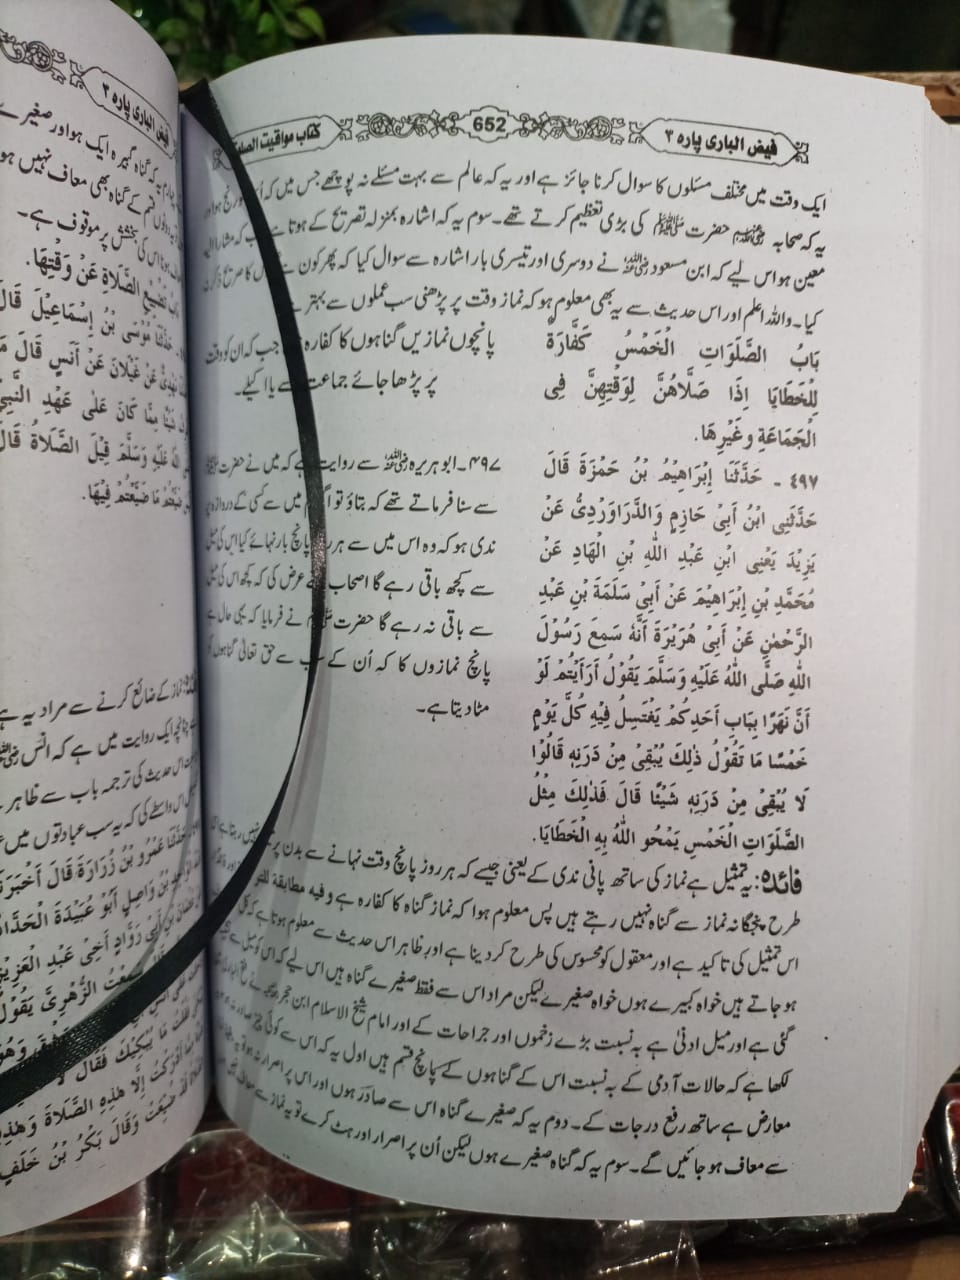 فیض الباری پارہ ۳
652
کتاب مواقیت الصلوٰۃ
ایک وقت میں مختلف مسئلوں کا سوال کرنا جائز ہے اور یہ کہ عالم سے بہت مسئلے نہ پوچھے جس میں کہ اُس رنج ہو اور
یہ کہ صحابہ رضی اللہ عنہم حضرت ﷺ کی بڑی تعظیم کرتے تھے۔ سوم یہ کہ اشارہ بمنزلہ تصریح کے ہوتا ہے جب کہ مشار الیہ
معین ہو اس لیے کہ ابن مسعود رضی اللہ عنہ نے دوسری اور تیسری بار اشارہ سے سوال کیا کہ پھر کون نے کا صریح ذکر نہ
کیا۔ واللہ اعلم اور اس حدیث سے یہ بھی معلوم ہو کہ نماز وقت پر پڑھنی سب عملوں سے بہتر ہے
بَابُ الصَّلَوَاتِ الْخَمْسُ كَفَّارَةٌ
لِلْخَطَايَا اِذَا صَلَّاهُنَّ لِوَقْتِهِنَّ فِي
الْجَمَاعَةِ وَغَيْرِهَا.
پانچوں نمازیں گناہوں کا کفارہ جب کہ ان کو وقت
پر پڑھا جائے جماعت سے یا اکیلے۔
٤٩٧ ـ حَدَّثَنَا إِبْرَاهِيْمُ بْنُ حَمْزَةَ قَالَ
حَدَّثَنِي ابْنُ أَبِي حَازِمٍ وَالدَّرَاوَرْدِيُّ عَنْ
يَزِيْدَ يَعْنِي ابْنِ عَبْدِ اللّٰهِ بْنِ الْهَادِ عَنْ
مُحَمَّدِ بْنِ إِبْرَاهِيْمَ عَنْ أَبِي سَلَمَةَ بْنِ عَبْدِ
الرَّحْمٰنِ عَنْ أَبِي هُرَيْرَةَ أَنَّهُ سَمِعَ رَسُوْلَ
اللّٰهِ صَلَّى اللّٰهُ عَلَيْهِ وَسَلَّمَ يَقُوْلُ أَرَأَيْتُمْ لَوْ
أَنَّ نَهْرًا بِبَابِ أَحَدِكُمْ يَغْتَسِلُ فِيْهِ كُلَّ يَوْمٍ
خَمْسًا مَا تَقُوْلُ ذٰلِكَ يُبْقِيْ مِنْ دَرَنِهِ قَالُوْا
لَا يُبْقِيْ مِنْ دَرَنِهِ شَيْئًا قَالَ فَذٰلِكَ مِثْلُ
الصَّلَوَاتِ الْخَمْسِ يَمْحُو اللّٰهُ بِهِ الْخَطَايَا.
۴۹۷۔ ابو ہریرہ رضی اللہ عنہ سے روایت ہے کہ میں نے حضرت ﷺ
سے سنا فرماتے تھے کہ بتاؤ تو میں سے کسی کے دروازہ پر
ندی ہو کہ وہ اس میں سے ہر پانچ بار نہائے کیا اس کی میل
سے کچھ باقی رہے گا اصحاب عرض کی کہ کچھ اس کی میل
سے باقی نہ رہے گا حضرت نے فرمایا کہ یہی حال ہے
پانچ نمازوں کا کہ اُن کے سے حق تعالیٰ گناہوں کو
مٹا دیتا ہے۔
فائدہ: یہ تمثیل ہے نماز کی ساتھ پانی ندی کے یعنی جیسے کہ ہر روز پانچ وقت نہانے سے بدن پر نہیں رہتا ہے اسی
طرح پنجگانہ نماز سے گناہ نہیں رہتے ہیں پس معلوم ہوا کہ نماز گناہ کا کفارہ ہے وفیہ مطابقۃ
اس تمثیل کی تاکید ہے اور معقول کو محسوس کی طرح کر دینا ہے اور ظاہر اس حدیث سے معلوم ہوتا ہے کہ
ہو جاتے ہیں خواہ کبیرے ہوں خواہ صغیرے لیکن مراد اس سے فقط صغیرے گناہ ہیں اس لیے کہ اس کو میل سے
گئی ہے اور میل ادنیٰ ہے بہ نسبت بڑے زخموں اور جراحات کے اور امام شیخ الاسلام ابن حجر نے
لکھا ہے کہ حالات آدمی کے بہ نسبت اس کے گناہوں کے پانچ قسم ہیں اول یہ کہ اس سے کوئی
معارض ہے ساتھ رفع درجات کے۔ دوم یہ کہ صغیرے گناہ اس سے صادر ہوں اور اس پر اصرار نہ
سے معاف ہو جائیں گے۔ سوم یہ کہ گناہ صغیرے ہوں لیکن اُن پر اصرار اور ہٹ کرے تو یہ نماز سے معاف
فیض الباری پارہ ۳
یہ کہ گناہ کبیرہ ایک ہو اور صغیرے
قسم کے گناہ بھی معاف نہیں ہو
اس کی بخشش پر موقوف ہے۔
بَابُ تَضْيِيْعِ الصَّلَاةِ عَنْ وَقْتِهَا.
حَدَّثَنَا مُوْسَى بْنُ إِسْمَاعِيْلَ قَالَ
عَنْ غَيْلَانَ عَنْ أَنَسٍ قَالَ مَا
شَيْئًا مِمَّا كَانَ عَلَى عَهْدِ النَّبِيِّ
اللّٰهُ عَلَيْهِ وَسَلَّمَ قِيْلَ الصَّلَاةُ قَالَ
ضَيَّعْتُمْ مَا ضَيَّعْتُمْ فِيْهَا.
نماز کے ضائع کرنے سے مراد یہ ہے
چنانچہ ایک روایت میں ہے کہ انس رضی اللہ
اس حدیث کی ترجمہ باب سے ظاہر
اس واسطے کی کہ یہ سب عبادتوں میں
حَدَّثَنَا عَمْرُو بْنُ زُرَارَةَ قَالَ أَخْبَرَنَا
بْنُ وَاصِلٍ أَبُوْ عُبَيْدَةَ الْحَدَّادُ
بْنِ أَبِي رَوَّادٍ أَخِي عَبْدِ الْعَزِيْزِ
سَمِعْتُ الزُّهْرِيَّ يَقُوْلُ
وَهُوَ
مَا يُبْكِيْكَ فَقَالَ لَا
أَدْرَكْتُ إِلَّا هٰذِهِ الصَّلَاةَ وَهٰذِهِ
ضُيِّعَتْ وَقَالَ بَكْرُ بْنُ خَلَفٍ